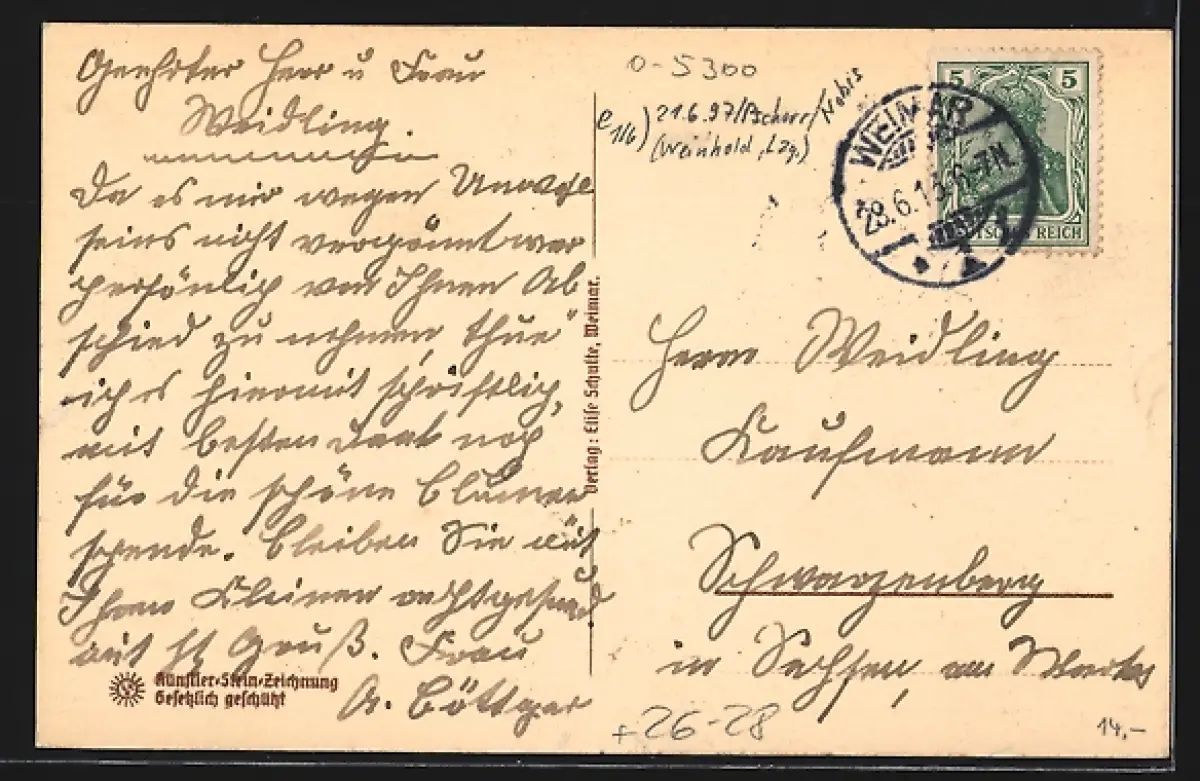 Geehrter Herr u Frau
Weidling.
Da es mir wegen Unwohl
seins nicht vergönnt war
persönlich von Ihnen Ab
schied zu nehmen, thue
ich es hiermit schriftlich,
mit besten Dank noch
für die schöne Blumen
spende. Bleiben Sie mit
Ihren Kleinen recht gesund
mit hl Gruß. Frau
A. Böttger
Künstler-Stein-Zeichnung
Gesetzlich geschützt
Verlag: Elise Schulte, Weimar.
0-5300
e 1/6) 21.6.97/Pscherr/Nobis
(Weinhold, Lzg.)
5 5
DEUTSCHES REICH
WEIMAR
28.6.13.6-7N.
Herrn Weidling
Kaufmann
Schwarzenberg
in Sachsen, am Markt
+26-28
14,-